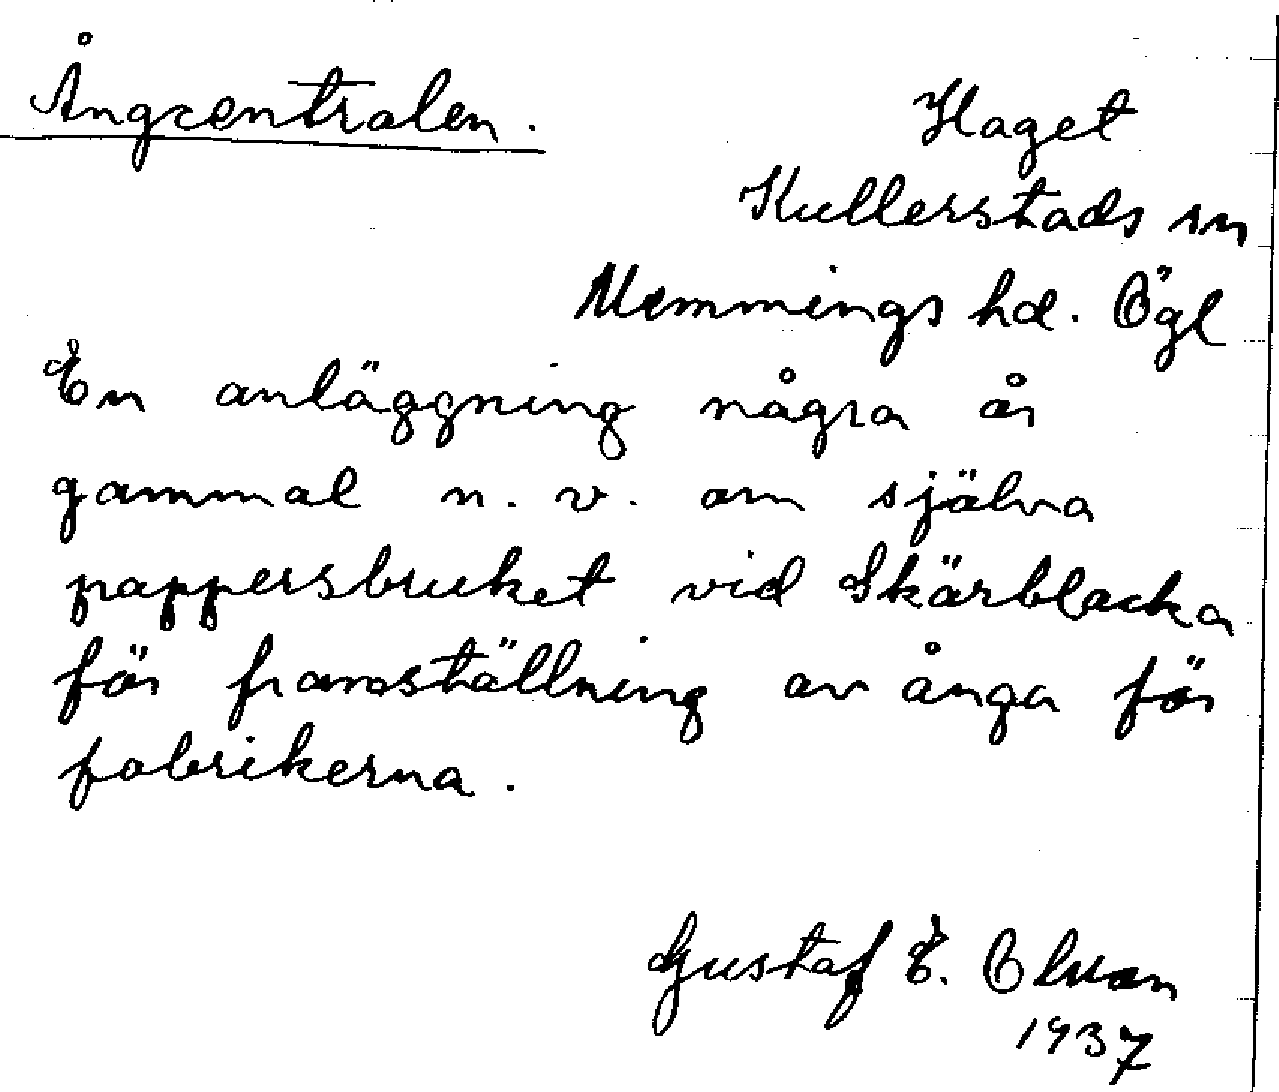 Ångcentralen.
Haget
Kullerstads sn
Memmings hd. Ögl
En anläggning några år
gammal n. v. om själva
pappersbruket vid Skärblacka
för framställning av ånga för
fabrikerna.
Gustaf E.
1937